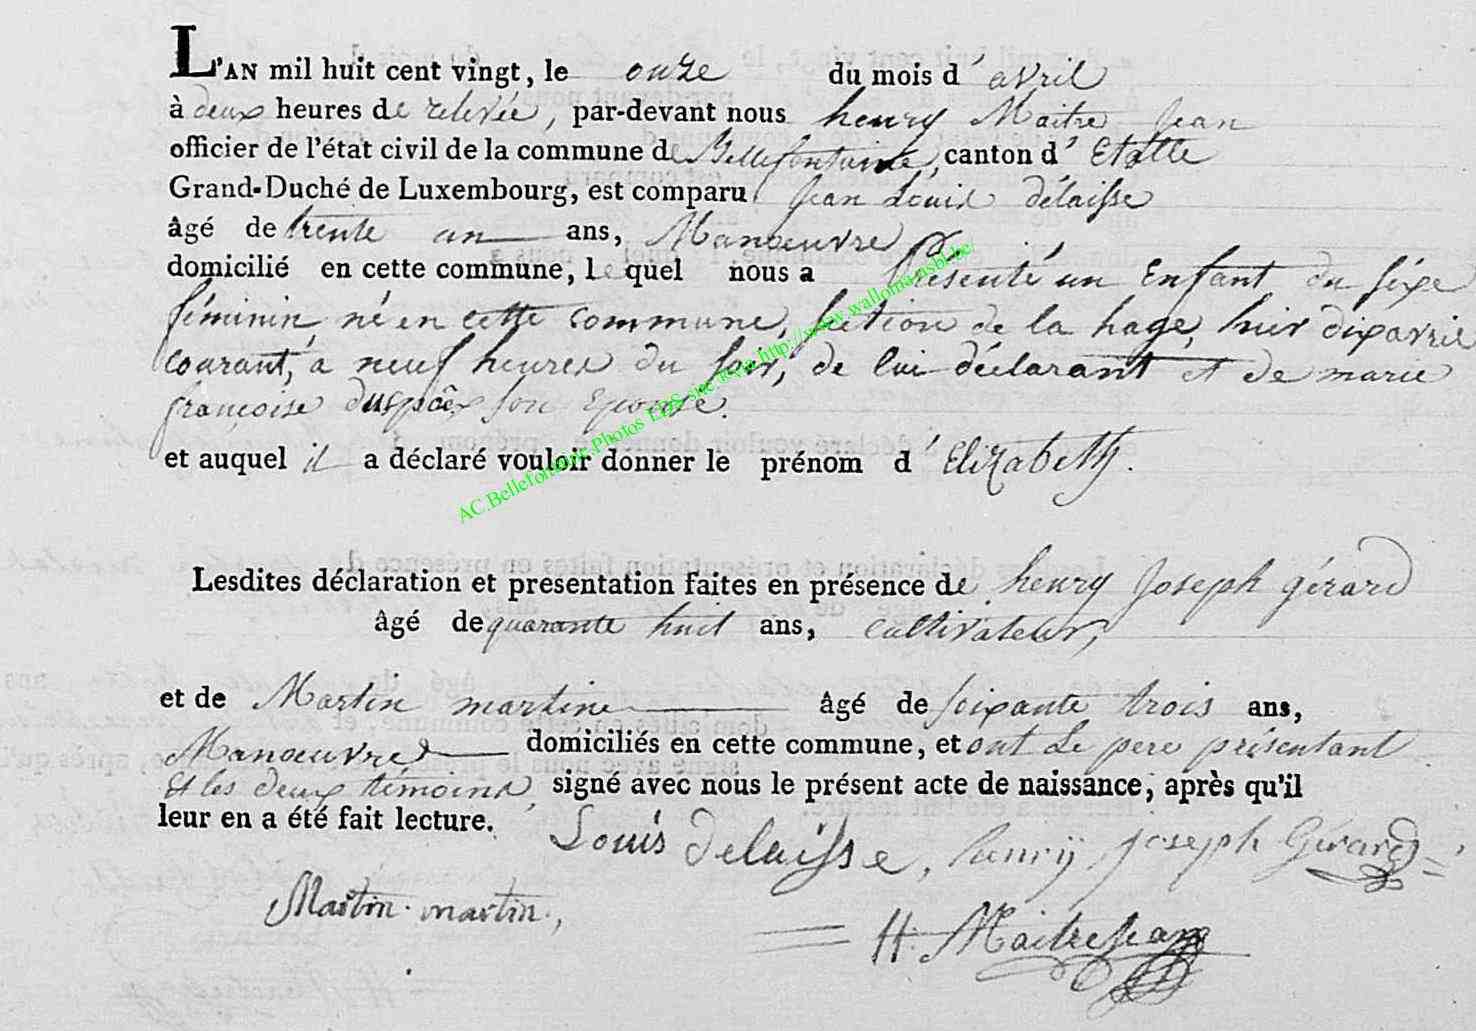 L'AN mil huit cent vingt, le onze du mois d'avril
à deux heures de relevée, par-devant nous henry Maitre Jean
officier de l'état civil de la commune de Bellefontaine, canton d'Etalle
Grand-Duché de Luxembourg, est comparu Jean Louis délaisse
âgé de trente un ans, Manœuvre
domicilié en cette commune, lequel nous a présenté un Enfant du séxe
féminin né en cette commune, section de la hage, hier dix avril
courant, à neuf heures du soir, de lui déclarant et de marie
françoise son Epouse.
et auquel il a déclaré vouloir donner le prénom d'Elizabeth.
AC.Bellefontaine.Photos EDS site http://www.wallomansbl.be
Lesdites déclaration et presentation faites en présence de henry Joseph gérard
âgé de quarante huit ans, cultivateur,
et de Martin martin âgé de soixante trois ans,
Manœuvre domiciliés en cette commune, et ont Le pere présentant
Et les deux témoins, signé avec nous le présent acte de naissance, après qu'il
leur en a été fait lecture.
Louis delaisse, henry, joseph Gérard
Martin martin,
H. MaitreJean